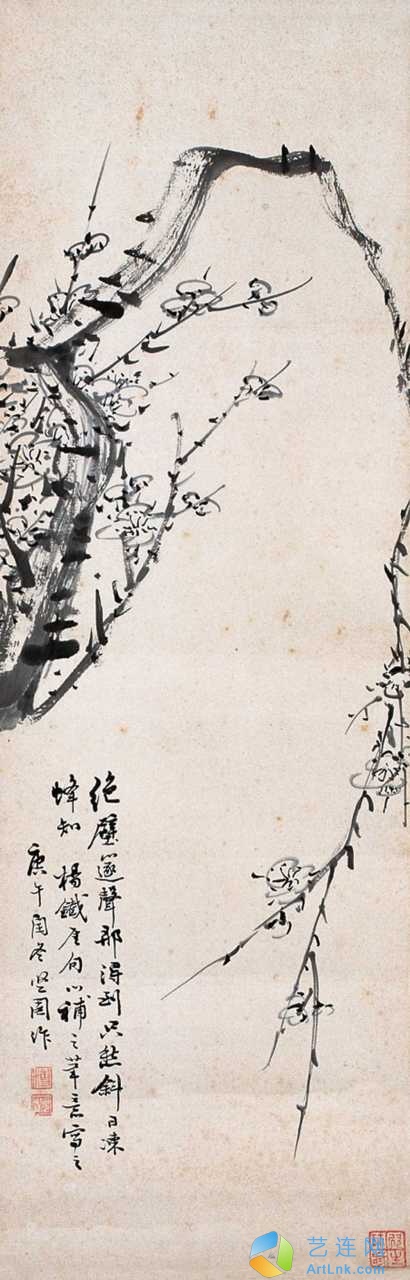 絕壁篴聲那得到只愁斜日凍
蜂知 楊鐵厓句以補之筆意寫之
庚午冬作
艺连网
ArtLnk.com